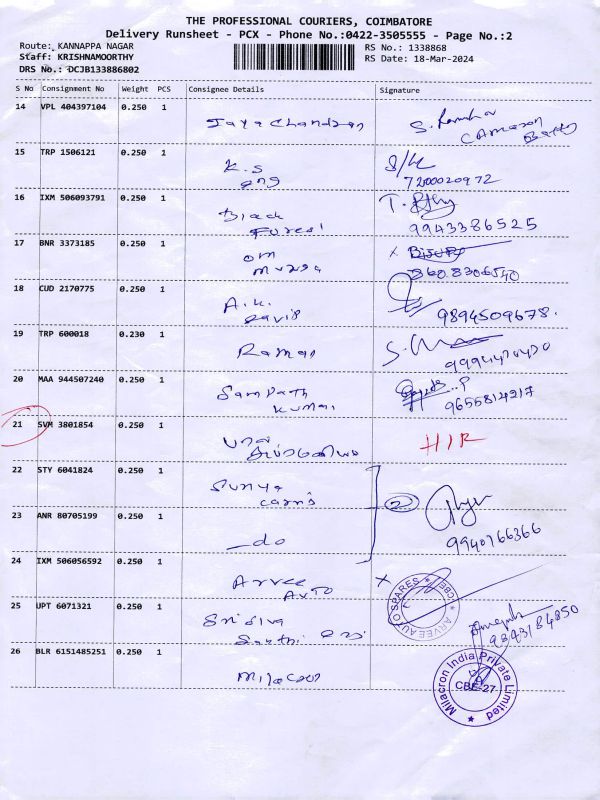 THE PROFESSIONAL COURIERS, COIMBATORE
Delivery Runsheet - PCX - Phone No.:0422-3505555 - Page No.:2
Route: KANNAPPA NAGAR
RS No.: 1338868
Staff: KRISHNAMOORTHY
RS Date: 18-Mar-2024
DRS No.: DCJB133886802
S No Consignment No Weight PCS Consignee Details Signature
14 VPL 404397104 0.250 1 Jaya Chandran S.
15 TRP 1506121 0.250 1
K.S
Eng
7200020972
16 IXM 506093791 0.250 1
Black
Forest
9943386525
17 BNR 3373185 0.250 1
om
muruga
18 CUD 2170775 0.250 1
A.K.
David
9894509678.
19 TRP 600018 0.230 1
Raman
20 MAA 944507240 0.250 1
Sampath
Kumar
9655814217
21 SVM 3801854 0.250 1
HIR
22 STY 6041824 0.250 1
Surya
Carris
2
23 ANR 80705199 0.250 1
do
9940766366
24 IXM 506056592 0.250 1
Arvee
Auto
ARVEE AUTO SPARES CBE
25 UPT 6071321 0.250 1
Sri Siva
Sakthi
9843184850
26 BLR 6151485251 0.250 1
Milacron
Milacron India Private Limited
CBE-27